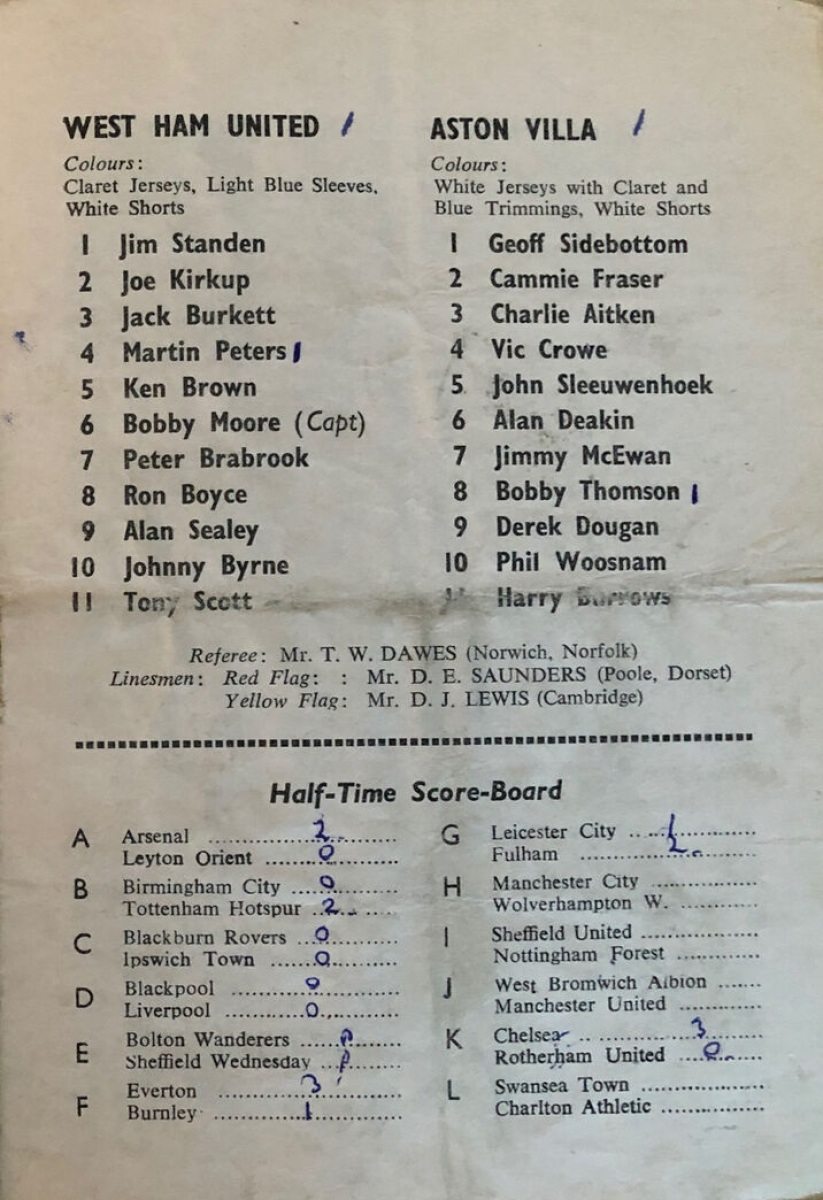 WEST HAM UNITED /
Colours:
Claret Jerseys, Light Blue Sleeves,
White Shorts
1 Jim Standen
2 Joe Kirkup
3 Jack Burkett
4 Martin Peters 1
5 Ken Brown
6 Bobby Moore (Capt)
7 Peter Brabrook
8 Ron Boyce
9 Alan Sealey
10 Johnny Byrne
11 Tony Scott
ASTON VILLA /
Colours:
White Jerseys with Claret and
Blue Trimmings, White Shorts
1 Geoff Sidebottom
2 Cammie Fraser
3 Charlie Aitken
4 Vic Crowe
5 John Sleeuwenhoek
6 Alan Deakin
7 Jimmy McEwan
8 Bobby Thomson 1
9 Derek Dougan
10 Phil Woosnam
Harry Burrows
Referee: Mr. T. W. DAWES (Norwich, Norfolk)
Linesmen: Red Flag: : Mr. D. E. SAUNDERS (Poole, Dorset)
Yellow Flag: Mr. D. J. LEWIS (Cambridge)
Half-Time Score-Board
A Arsenal .................. 2
Leyton Orient .................. 0
B Birmingham City .................. 0
Tottenham Hotspur .................. 2
C Blackburn Rovers .................. 0
Ipswich Town .................. 0
D Blackpool .................. 0
Liverpool .................. 0
E Bolton Wanderers ..................
Sheffield Wednesday ..................
F Everton .................. 3
Burnley .................. 1
G Leicester City .................. 1
Fulham .................. 2
H Manchester City ..................
Wolverhampton W. ..................
I Sheffield United ..................
Nottingham Forest ..................
J West Bromwich Albion .......
Manchester United ..................
K Chelsea .................. 3
Rotherham United .................. 0
L Swansea Town ..................
Charlton Athletic ..................